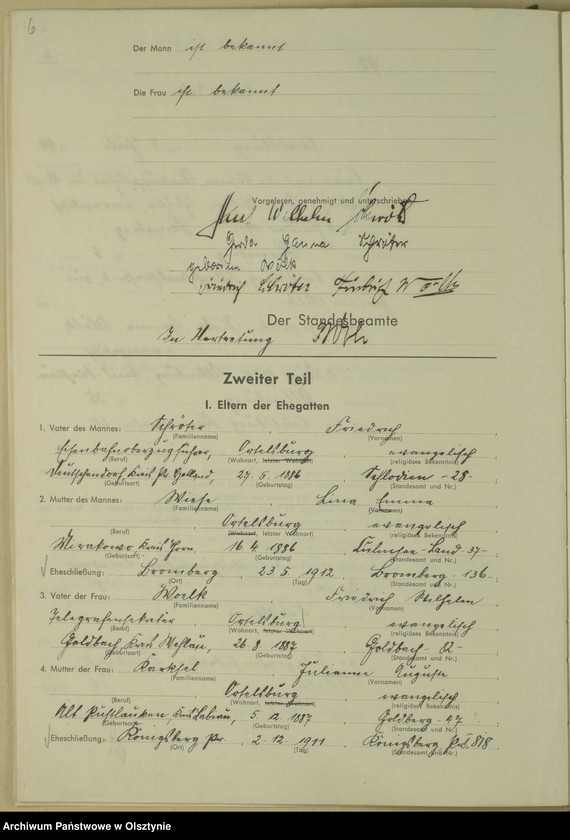 6
Der Mann ist bekannt
Die Frau ist bekannt
Vorgelesen, genehmigt und unterschrieben
Kurt Wilhelm Schröter
Gerda Hanna Schröter
geborene Woelk
Friedrich Schröter Friedrich Woelk
Der Standesbeamte
In Vertretung
Zweiter Teil
I. Eltern der Ehegatten
1. Vater des Mannes: Schröter, Friedrich
(Familienname) (Vornamen)
Eisenbahnoberzugführer, Ortelsburg, evangelisch
(Beruf) (Wohnort, letzter Wohnort) (religiöses Bekenntnis)
Deutschendorf Kreis Pr. Holland, 27. 5. 1886 Schlodien - 28 -
(Geburtsort) (Geburtstag) (Standesamt und Nr.)
2. Mutter des Mannes: Wiese, Lina Emma
(Familienname) (Vornamen)
Ortelsburg, evangelisch
(Beruf) (Wohnort, letzter Wohnort) (religiöses Bekenntnis)
Mirakowo Kreis Thorn, 16. 4. 1886 Culmsee-Land - 37 -
(Geburtsort) (Geburtstag) (Standesamt und Nr.)
Eheschließung: Bromberg, 23. 5. 1912, Bromberg - 136 -
(Ort) (Tag) (Standesamt und Nr.)
3. Vater der Frau: Woelk, Friedrich Wilhelm
(Familienname) (Vornamen)
Telegrafensekretär Ortelsburg, evangelisch
(Beruf) (Wohnort, letzter Wohnort) (religiöses Bekenntnis)
Goldbach Kreis Wehlau, 26. 8. 1887 Goldbach -
(Geburtsort) (Geburtstag) (Standesamt und Nr.)
4. Mutter der Frau: Julianne Auguste
(Familienname) (Vornamen)
Ortelsburg, evangelisch
(Beruf) (Wohnort, letzter Wohnort) (religiöses Bekenntnis)
Alt Pustlauken Kreis Labiau, 5. 12. 1887 Goldberg - 47
(Geburtsort) (Geburtstag) (Standesamt und Nr.)
Eheschließung: Königsberg Pr., 2. 12. 1911, Königsberg Pr. 818.
(Ort) (Tag) (Standesamt und Nr.)
Archiwum Państwowe w Olsztynie